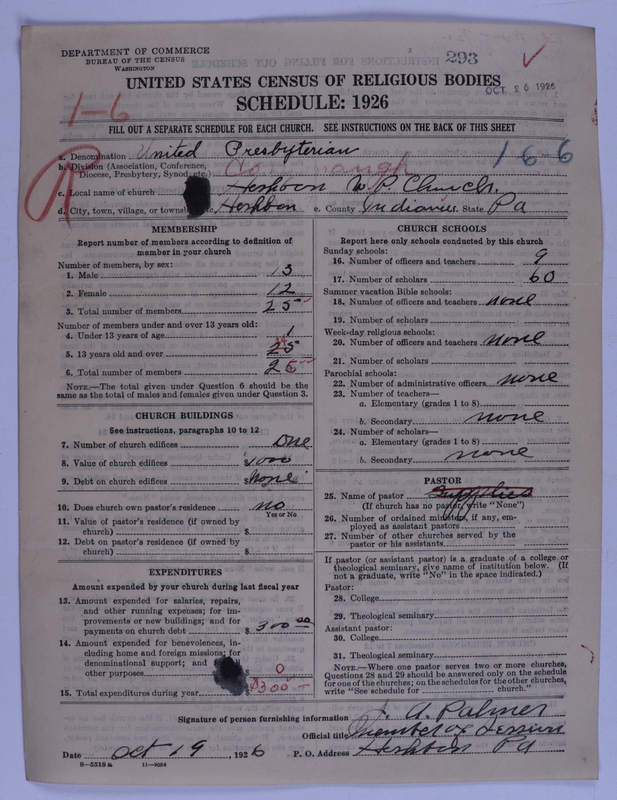 DEPARTMENT OF COMMERCE
BUREAU OF THE CENSUS
WASHINGTON
293
OCT 26 1926
UNITED STATES CENSUS OF RELIGIOUS BODIES
SCHEDULE: 1926
1-6
FILL OUT A SEPARATE SCHEDULE FOR EACH CHURCH. SEE INSTRUCTIONS ON THE BACK OF THIS SHEET
R
a. Denomination United Presbyterian
166
b. Division (Association, Conference, Diocese, Presbytery, Synod, etc.)
c. Local name of church Heshbon U. P. Church.
d. City, town, village, or township Heshbon e. County Indiana f. State Pa
MEMBERSHIP
Report number of members according to definition of
member in your church
Number of members, by sex:
1. Male 13
2. Female 12
3. Total number of members 25
Number of members under and over 13 years old:
4. Under 13 years of age 1
5. 13 years old and over 25 24
6. Total number of members 25
NOTE.—The total given under Question 6 should be the
same as the total of males and females given under Question 3.
CHURCH BUILDINGS
See instructions, paragraphs 10 to 12
7. Number of church edifices One
8. Value of church edifices $1000
9. Debt on church edifices $None
10. Does church own pastor's residence? no
Yes or No
11. Value of pastor's residence (if owned by
church) $
12. Debt on pastor's residence (if owned by
church) $
EXPENDITURES
Amount expended by your church during last fiscal year
13. Amount expended for salaries, repairs,
and other running expenses; for im-
provements or new buildings; and for
payments on church debt $ 300 00
14. Amount expended for benevolences, in-
cluding home and foreign missions; for
denominational support; and
other purposes 0
15. Total expenditures during year $300 -
CHURCH SCHOOLS
Report here only schools conducted by this church
Sunday schools:
16. Number of officers and teachers 9
17. Number of scholars 60
Summer vacation Bible schools:
18. Number of officers and teachers none
19. Number of scholars
Week-day religious schools:
20. Number of officers and teachers none
21. Number of scholars
Parochial schools:
22. Number of administrative officers none
23. Number of teachers—
a. Elementary (grades 1 to 8)
b. Secondary none
24. Number of scholars—
a. Elementary (grades 1 to 8)
b. Secondary none
PASTOR
25. Name of pastor Supplies
(If church has no pastor, write "None")
26. Number of ordained ministers, if any, em-
ployed as assistant pastors
27. Number of other churches served by the
pastor or his assistants
If pastor (or assistant pastor) is a graduate of a college or
theological seminary, give name of institution below. (If
not a graduate, write "No" in the space indicated.)
Pastor:
28. College
29. Theological seminary
Assistant pastor:
30. College
31. Theological seminary
NOTE.—Where one pastor serves two or more churches,
Questions 28 and 29 should be answered only on the schedule
for one of the churches; on the schedules for the other churches,
write "See schedule for church."
Signature of person furnishing information J. A. Palmer
Official title Member of Session
Date Oct 19, 1926 P. O. Address Heshbon Pa
8-5518a 11-9024